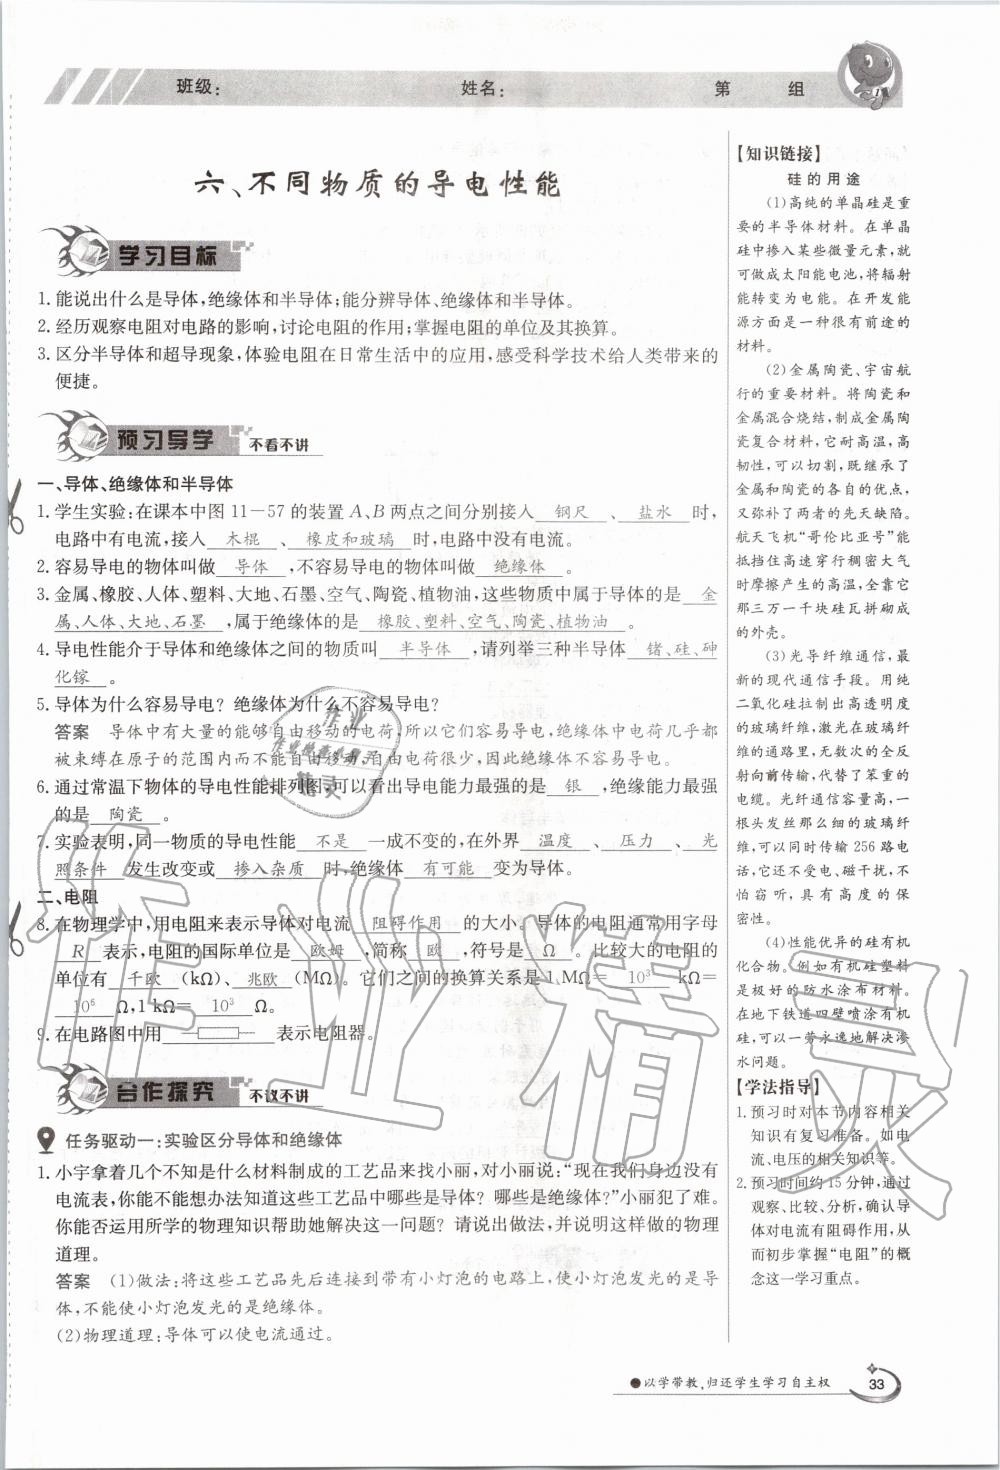 班级：
姓名：
第 组
六、不同物质的导电性能
学习目标
1. 能说出什么是导体,绝缘体和半导体;能分辨导体、绝缘体和半导体。
2. 经历观察电阻对电路的影响,讨论电阻的作用;掌握电阻的单位及其换算。
3. 区分半导体和超导现象,体验电阻在日常生活中的应用,感受科学技术给人类带来的
便捷。
预习导学 不看不讲
一、导体、绝缘体和半导体
1. 学生实验:在课本中图 11－57 的装置 A、B 两点之间分别接入 钢尺 、 盐水 时,
电路中有电流,接入 木棍 、 橡皮和玻璃 时,电路中没有电流。
2. 容易导电的物体叫做 导体 ,不容易导电的物体叫做 绝缘体 。
3. 金属、橡胶、人体、塑料、大地、石墨、空气、陶瓷、植物油,这些物质中属于导体的是 金
属、人体、大地、石墨 ,属于绝缘体的是 橡胶、塑料、空气、陶瓷、植物油 。
4. 导电性能介于导体和绝缘体之间的物质叫 半导体 ,请列举三种半导体 锗、硅、砷
化镓 。
5. 导体为什么容易导电? 绝缘体为什么不容易导电?
答案 导体中有大量的能够自由移动的电荷,所以它们容易导电,绝缘体中电荷几乎都
被束缚在原子的范围内而不能自由移动,自由电荷很少,因此绝缘体不容易导电。
6. 通过常温下物体的导电性能排列图,可以看出导电能力最强的是 银 ,绝缘能力最强
的是 陶瓷 。
7. 实验表明,同一物质的导电性能 不是 一成不变的,在外界 温度 、 压力 、 光
照条件 发生改变或 掺入杂质 时,绝缘体 有可能 变为导体。
二、电阻
8. 在物理学中,用电阻来表示导体对电流 阻碍作用 的大小。导体的电阻通常用字母
R 表示,电阻的国际单位是 欧姆 ,简称 欧 ,符号是 Ω 。比较大的电阻的
单位有 千欧 (kΩ)、 兆欧 (MΩ)。它们之间的换算关系是 1 MΩ＝ 10³ kΩ＝
10⁶ Ω,1 kΩ＝ 10³ Ω。
9. 在电路图中用 表示电阻器。
合作探究 不议不讲
任务驱动一:实验区分导体和绝缘体
1. 小宇拿着几个不知是什么材料制成的工艺品来找小丽,对小丽说:“现在我们身边没有
电流表,你能不能想办法知道这些工艺品中哪些是导体? 哪些是绝缘体?”小丽犯了难。
你能否运用所学的物理知识帮助她解决这一问题? 请说出做法,并说明这样做的物理
道理。
答案 (1)做法:将这些工艺品先后连接到带有小灯泡的电路上,使小灯泡发光的是导
体,不能使小灯泡发光的是绝缘体。
(2)物理道理:导体可以使电流通过。
【知识链接】
硅的用途
(1)高纯的单晶硅是重
要的半导体材料。在单晶
硅中掺入某些微量元素,就
可做成太阳能电池,将辐射
能转变为电能。在开发能
源方面是一种很有前途的
材料。
(2)金属陶瓷、宇宙航
行的重要材料。将陶瓷和
金属混合烧结,制成金属陶
瓷复合材料,它耐高温,高
韧性,可以切割,既继承了
金属和陶瓷的各自的优点,
又弥补了两者的先天缺陷。
航天飞机“哥伦比亚号”能
抵挡住高速穿行稠密大气
时摩擦产生的高温,全靠它
那三万一千块硅瓦拼砌成
的外壳。
(3)光导纤维通信,最
新的现代通信手段。用纯
二氧化硅拉制出高透明度
的玻璃纤维,激光在玻璃纤
维的通路里,无数次的全反
射向前传输,代替了笨重的
电缆。光纤通信容量高,一
根头发丝那么细的玻璃纤
维,可以同时传输 256 路电
话,它还不受电、磁干扰,不
怕窃听,具有高度的保
密性。
(4)性能优异的硅有机
化合物。例如有机硅塑料
是极好的防水涂布材料。
在地下铁道四壁喷涂有机
硅,可以一劳永逸地解决渗
水问题。
【学法指导】
1. 预习时对本节内容相关
知识有复习准备。如电
流、电压的相关知识等。
2. 预习时间约 15 分钟,通过
观察、比较、分析,确认导
体对电流有阻碍作用,从
而初步掌握“电阻”的概
念这一学习重点。
●以学带教,归还学生学习自主权
33
作业
精灵
作业精灵